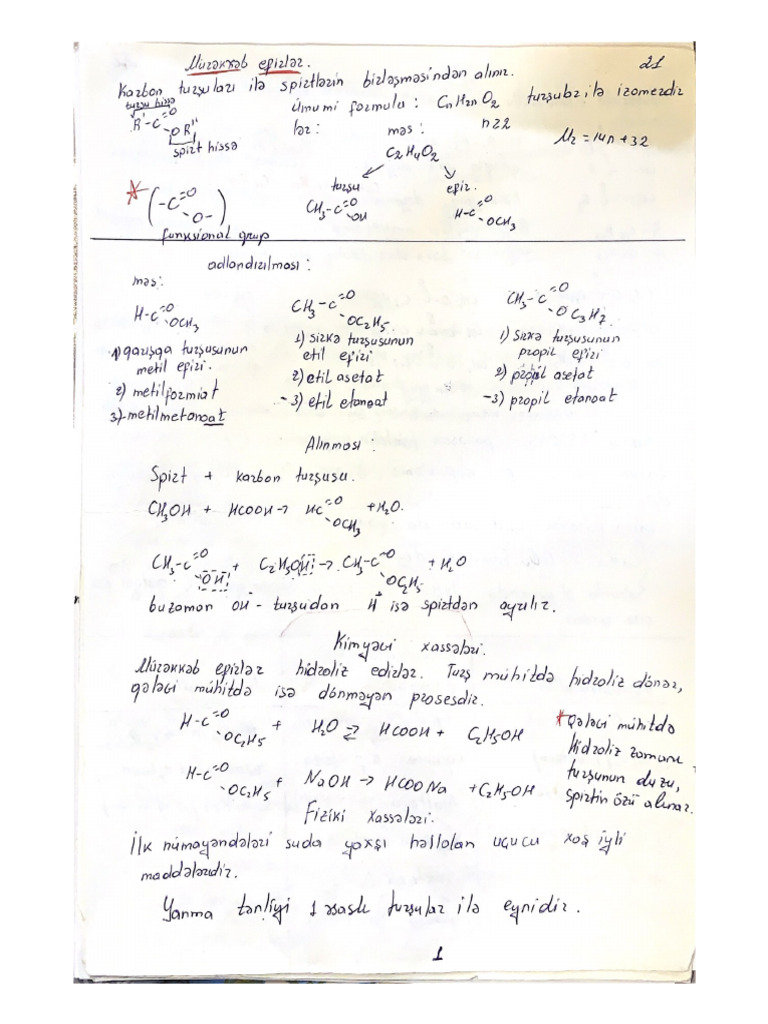 Mürəkkəb efirlər. 21
Karbon turşuları ilə spirtlərin birləşməsindən alınır.
turşu hissə
R'-C=O
OR''
spirt hissə
Ümumi formulu: CnH2nO2 turşular ilə izomerdir
lər: məs: n≥2 Mr=14n+32
C2H4O2
turşu efir.
CH3-C=O
OH
H-C=O
OCH3
* (-C=O
O-)
funksional qrup
adlandırılması:
məs:
H-C=O
OCH3
1) qarışqa turşusunun
metil efiri.
2) metilformiat
3) metilmetanoat
CH3-C=O
OC2H5
1) sirkə turşusunun
etil efiri
2) etil asetat
-3) etil etanoat
CH3-C=O
OC3H7
1) sirkə turşusunun
propil efiri
2) propil asetat
-3) propil etanoat
Alınması:
Spirt + karbon turşusu.
CH3OH + HCOOH → HC=O +H2O.
OCH3
CH3-C=O + C2H5OH → CH3-C=O + H2O
OH OC2H5
bu zaman OH- turşudan H+ isə spirtdən ayrılır.
Kimyəvi xassələri.
Mürəkkəb efirlər hidroliz edirlər. Turş mühitdə hidroliz dönər,
qələvi mühitdə isə dönməyən prosesdir.
H-C=O + H2O ⇄ HCOOH + C2H5OH
OC2H5
H-C=O + NaOH → HCOONa + C2H5OH
OC2H5
* Qələvi mühitdə
hidroliz zamanı
turşunun duzu,
spirtin özü alınar.
Fiziki xassələri.
İlk nümayəndələri suda yaxşı həllolan uçucu xoş iyli
maddələrdir.
Yanma tənliyi 1 əsaslı turşular ilə eynidir.
1